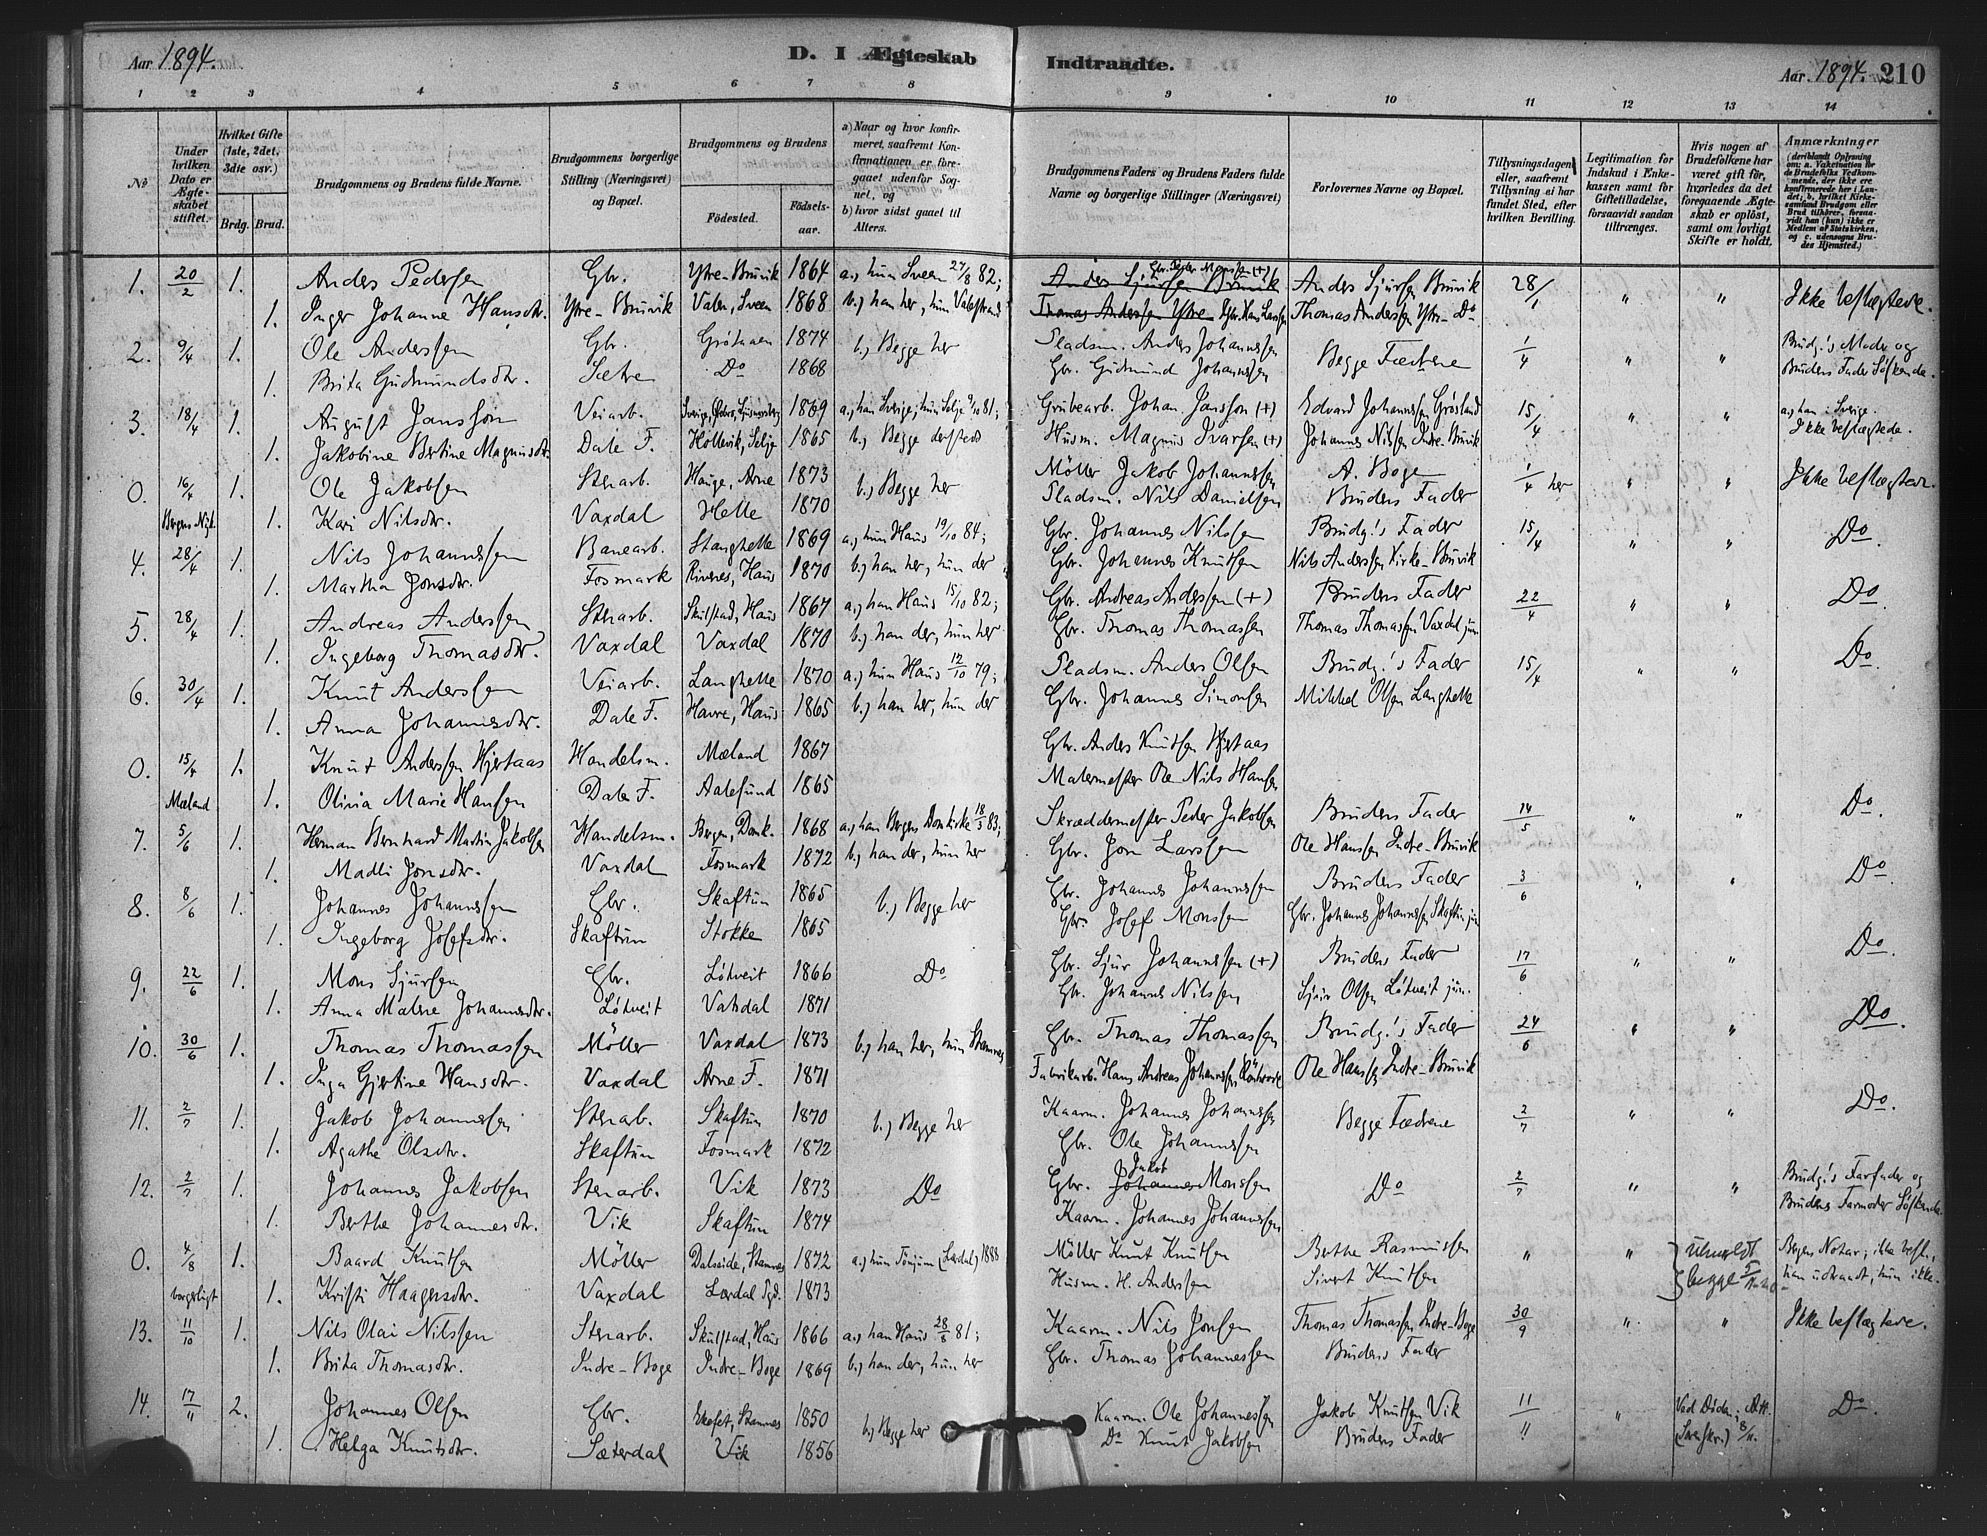 Aar 1894.
D. I Ægteskab Indtraadte.
Aar 1894. 210
1 2 3 4 5 6 7 8 9 10 11 12 13 14
№
Under hvilken Dato er Ægteskabet stiftet.
Hvilket Gifte (1ste, 2det, 3die osv.)
Brdg. Brud.
Brudgommens og Brudens fulde Navne.
Brudgommens borgerlige Stilling (Næringsvei) og Bopæl.
Brudgommens og Brudens
Födested. Födselsaar.
a) Naar og hvor konfirmeret, saafremt Konfirmationen er foregaaet udenfor Sognet, og
b) hvor sidst gaaet til Alters.
Brudgommens Faders og Brudens Faders fulde Navne og borgerlige Stillinger (Næringsvei)
Forlovernes Navne og Bopæl.
Tillysningsdagen eller, saafremt Tillysning ei har fundet Sted, efter hvilken Bevilling.
Legitimation for Indskud i Enkekassen samt for Giftetilladelse, forsaavidt saadan tiltrænges.
Hvis nogen af Brudefolkene har været gift før, hvorledes da det foregaaende Ægteskab er oplöst, samt om lovligt Skifte er holdt.
Anmærkninger (deriblandt Oplysning om: a. Vakcination for de Brudefolks Vedkommende, der ikke ere konfirmerede her i Landet; b. hvilket Kirkesamfund Brudgom eller Brud tilhörer, forsaavidt han (hun) ikke er Medlem af Statskirken, og c. udensogns Brudes Hjemsted.)
1. 20/2 1. Anders Pedersen Gbr. Ytre-Bruvik 1864 a.) hun Sveen 27/8 82; Gbr. Peder Monsen (+) Anders Sjursen Bruvik Anders Sjursen Bruvik 28/1 " " Ikke beslægtede.
1. Inger Johanne Hansdtr. Ytre-Bruvik Valen, Sveen 1868 b.) han her, hun Valestrand Thomas Andersen Ytre Gbr. Hans Larssen Thomas Andersen Ytre-Do
2. 9/4 1. Ole Anderssen Gbr. 1874 b.) Begge her Pladsm. Anders Johannessen Begge Fædrene 1/4 " " Brudg.'s Moder og
1. Brita Gudmundsdtr. Sætre Do 1868 Gbr. Gudmund Johannessen Brudens Fader Söskende.
3. 18/4 1. August Jansson Veiarb. Sverige, Örebro, Ljusnarsberg 1869 a.) han Sverige; hun Selje 9/10 81; Grubearb. Johan Jansson (+) Edvard Johannessen 15/4 " " a.) han i Sverige.
1. Jakobine Bertine Magnusdtr. Dale F. Hollevik, Selje 1865 b.) Begge dersteds Husm. Magnus Ivarsen (+) Johannes Nilssen Indre-Bruvik Ikke beslægtede.
0. 16/4 1. Ole Jakobsen Stenarb. Hauge, Arne 1873 b.) Begge her Möller Jakob Johannessen A. Boge 1/4 her " " Ikke beslægtede.
Bergens Nyk. 1. Kari Nilsdtr. Vaxdal Helle 1870 Pladsm. Nils Danielsen Brudens Fader
4. 28/4 1. Nils Johannessen Banearb. Stanghelle 1869 a.) hun Haus 19/10 84; Gbr. Johannes Nilssen Brudg.'s Fader 15/4 " " Do.
1. Martha Jonsdtr. Fosmark Rivenes, Haus 1870 b.) han her, hun der Gbr. Johannes Knutsen Nils Anderssen Kirke-Bruvik
5. 28/4 1. Andreas Anderssen Stenarb. Skulstad, Haus 1867 a.) han Haus 15/10 82; Gbr. Andreas Anderssen (+) Brudens Fader 22/4 " " Do.
1. Ingeborg Thomasdtr. Vaxdal Vaxdal 1870 b.) han der, hun her Gbr. Thomas Thomassen Thomas Thomassen Vaxdal jun.
6. 30/4 1. Knut Anderssen Veiarb. Langhelle 1870 a.) hun Haus 12/10 79; Pladsm. Anders Olsen Brudg.'s Fader 15/4 " " Do.
1. Anna Johannesdtr. Dale F. Havre, Haus 1865 b.) han her, hun der Gbr. Johannes Simonsen Mikkel Olsen Langhelle
0. 15/4 1. Knut Anderssen Hjertaas Handelsm. Mæland 1867 Gbr. Anders Knutsen Hjertaas
Mæland 1. Olivia Marie Hansen Dale F. Aalesund 1865 Malermester Ole Nils Hansen
7. 5/6 1. Herman Bernhard Martin Jakobsen Handelsm. Bergen, Domk. 1868 a.) han Bergens Domkirke 18/3 83; Skræddermester Peder Jakobsen Brudens Fader 14/5 " " Do.
1. Madli Jonsdtr. Vaxdal Fosmark 1872 b.) han der, hun her Gbr. Jon Larssen Ole Hanssen Indre-Bruvik
8. 8/6 1. Johannes Johannessen Gbr. Skaftun 1865 b.) Begge her Gbr. Johannes Johannessen Brudens Fader 3/6 " " Do.
1. Ingeborg Josefsdtr. Skaftun Stokke 1865 Gbr. Josef Monsen Gbr. Johannes Johannessen Skaftun jun.
9. 22/6 1. Mons Sjursen Gbr. Lötveit 1866 Do Gbr. Sjur Johannessen (+) Brudens Fader 17/6 " " Do.
1. Anna Malene Johannesdtr. Lötveit Vaxdal 1871 Gbr. Johannes Nilssen Sjur Olsen Lötveit jun.
10. 30/6 1. Thomas Thomassen Möller Vaxdal 1873 b.) han her, hun Stamnes Gbr. Thomas Thomassen Brudg.'s Fader 24/6 " " Do.
1. Inga Gjertine Hansdtr. Vaxdal Arne F. 1871 Fabrikarb. Hans Andreas Johannessen Ole Hanssen Indre-Bruvik
11. 2/7 1. Jakob Johannessen Stenarb. Skaftun 1870 b.) Begge her Kaarm. Johannes Johannessen Begge Fædrene 2/7 " " Do.
1. Agathe Olsdtr. Skaftun Fosmark 1872 Gbr. Ole Johannessen
12. 2/7 1. Johannes Jakobsen Stenarb. Vik 1873 Do Gbr. Johannes Jakob Monssen Do 2/7 " " Brudg.'s Farfader og
1. Berthe Johannesdtr. Vik Skaftun 1874 Kaarm. Johannes Johannessen Brudens Farmoder Söskende.
0. 4/8 1. Baard Knutsen Möller Dalseide, Stamnes 1872 a.) hun Tönjum (Lærdal) 1888 Möller Knut Knutsen Berthe Rasmussen " " Bergens Notar; ikke besl.,
borgerligt 1. Kristi Haagensdtr. Vaxdal Lærdal Pgd. 1873 Husm. H. Anderssen Sivert Knutsen begge han udtraadt; hun ikke.
13. 11/10 1. Nils Olai Nilssen Stenarb. Skulstad, Haus 1866 a.) han Haus 28/8 81; Kaarm. Nils Jonsen Thomas Thomassen Indre-Boge 30/9 " " Ikke beslægtede.
1. Brita Thomasdtr. Indre-Boge Indre-Boge 1869 b.) han der, hun her Gbr. Thomas Johannessen Brudens Fader
14. 17/11 2. Johannes Olsen Gbr. Stamnes 1850 b.) Begge her Kaarm. Ole Johannessen Jakob Knutsen Vik 11/11 " Ved Död. Att. Do.
1. Helga Knutsdtr. Sæterdal Vik 1856 Do Knut Jakobsen Brudens Fader (Sorenskr.) 8/11.